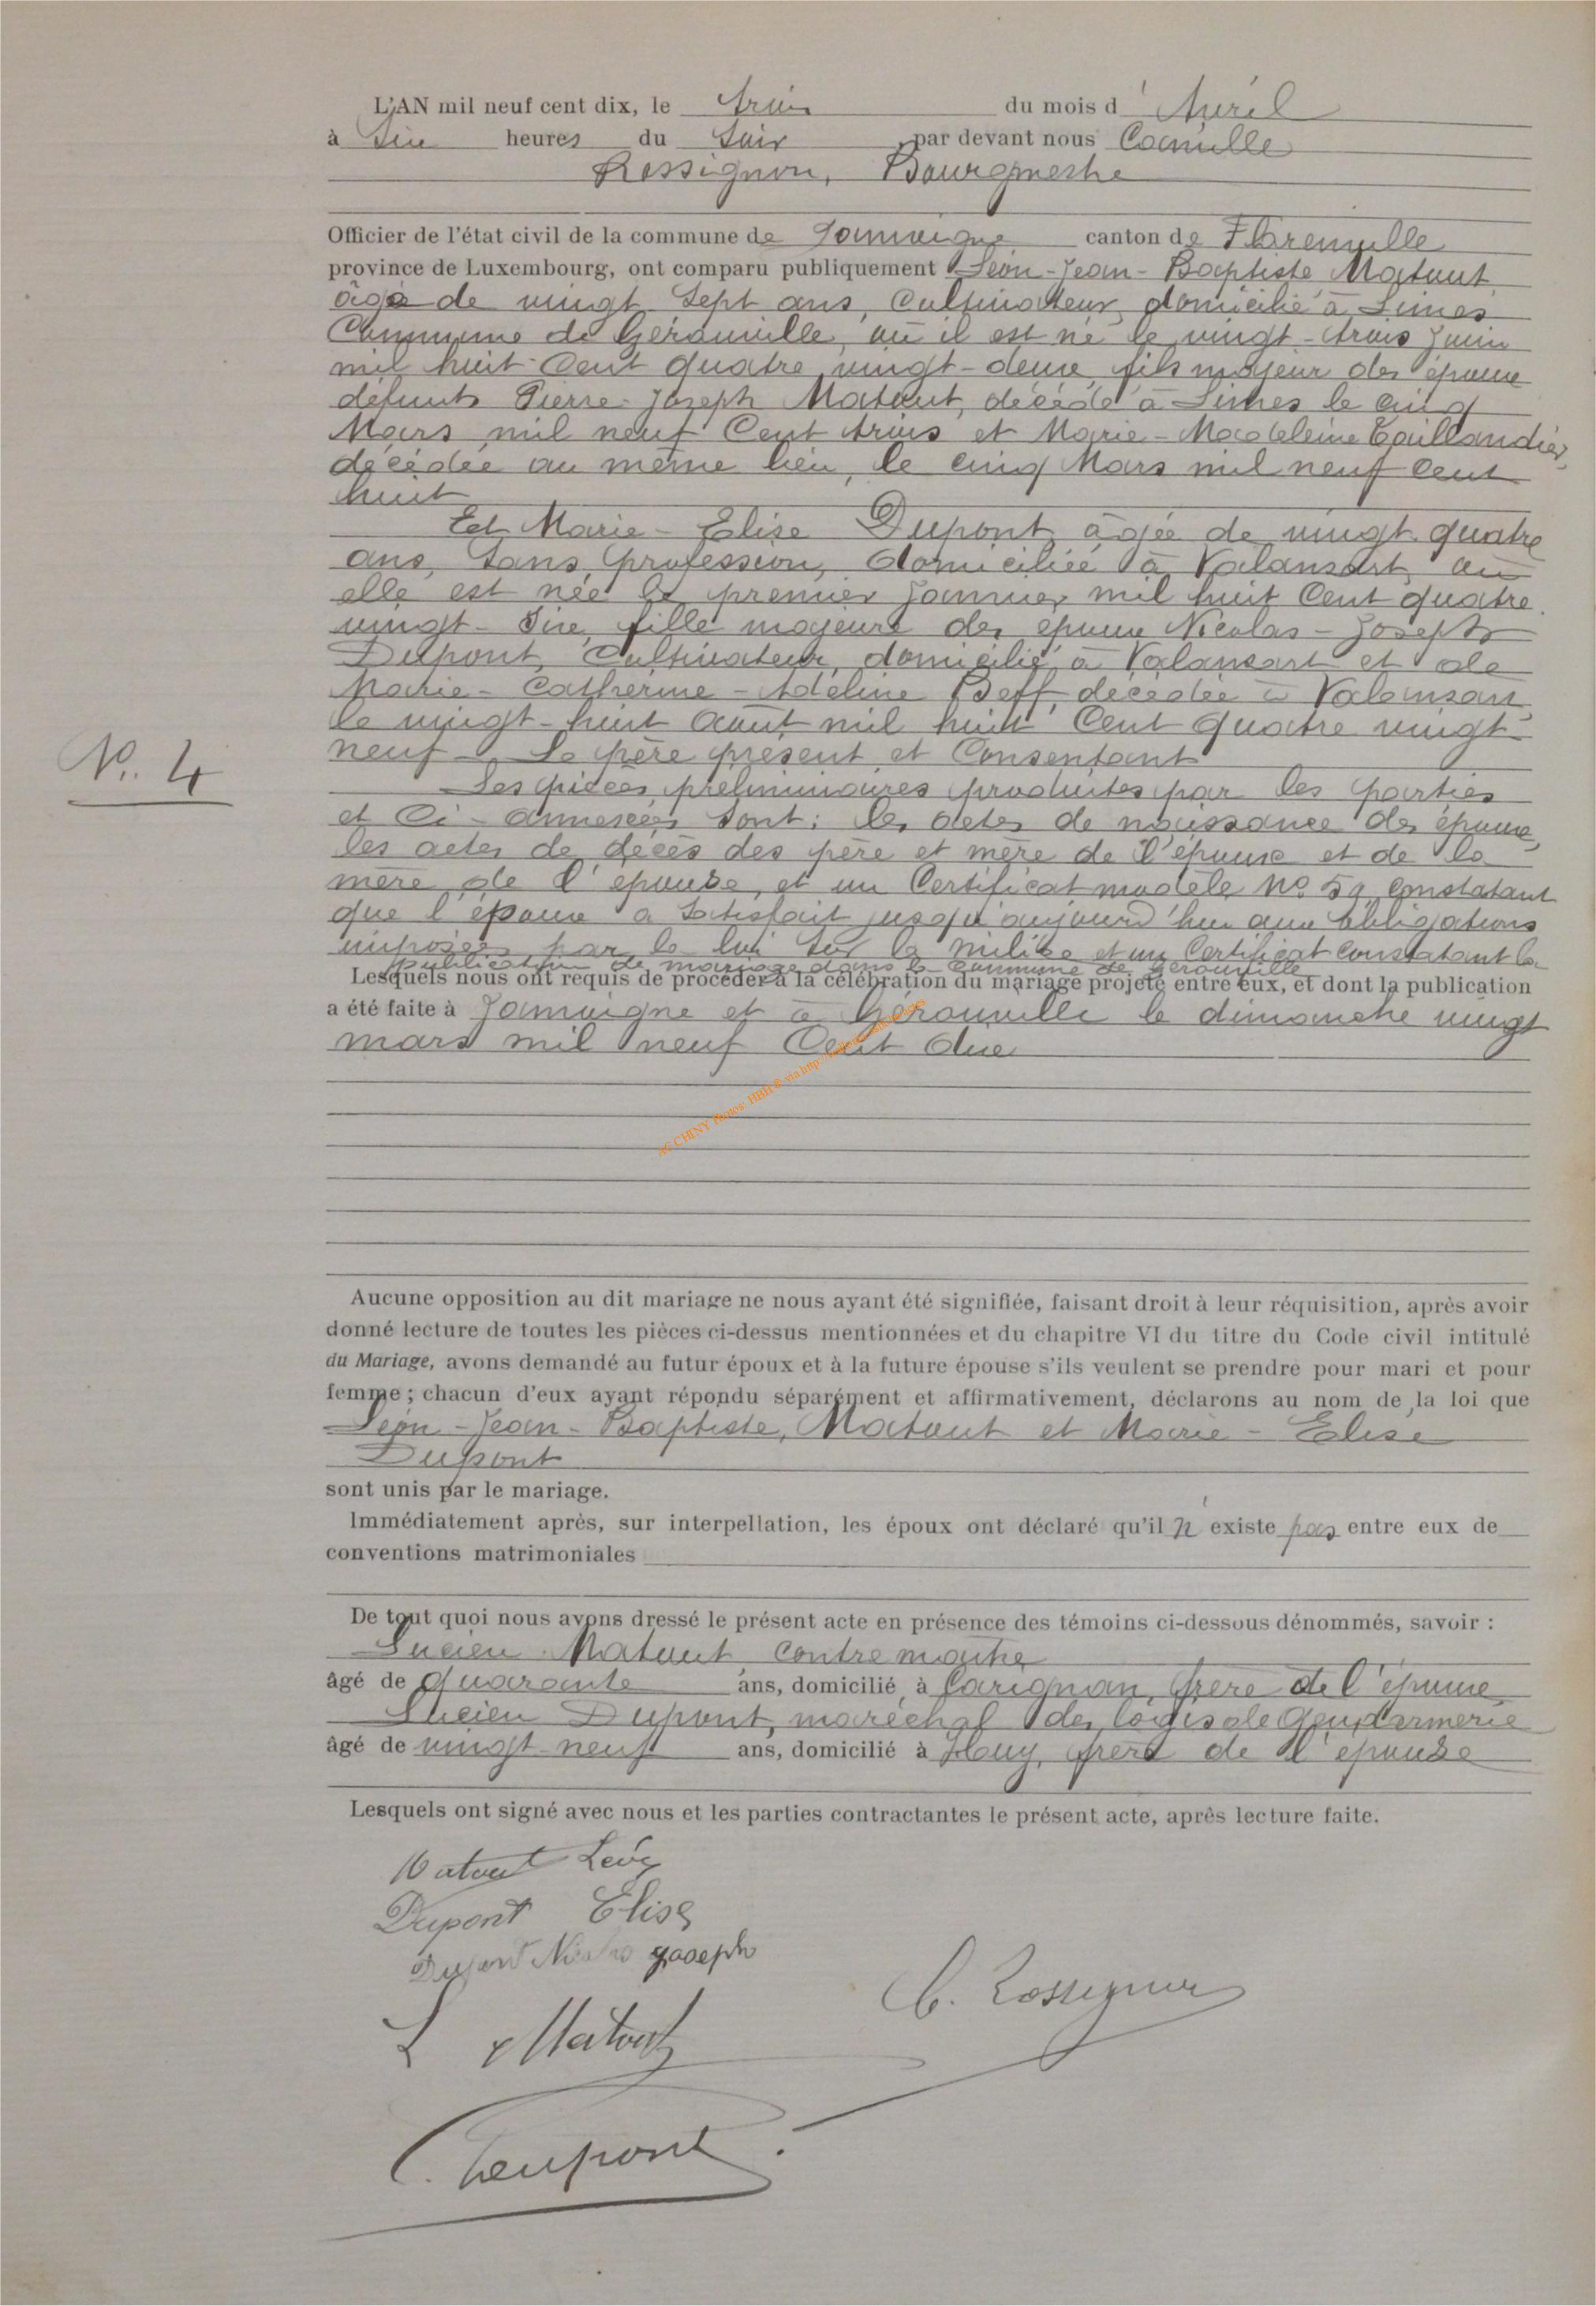 L'AN mil neuf cent dix, le trois du mois d'Avril
à six heures du soir par devant nous Camille
Rossignon, Bourgmestre
Officier de l'état civil de la commune de Jamoigne canton de Florenville
province de Luxembourg, ont comparu publiquement Léon-Jean-Baptiste Matout
âgé de vingt sept ans, Cultivateur domicilié à Limes
Commune de Gérouville, où il est né le vingt-trois Juin
mil huit Cent quatre vingt-deux, fils majeur des époux
défunts Pierre-Joseph Matout, décédé à Limes le cinq
Mars mil neuf Cent trois et Marie-Madeleine Taillandier,
décédée au même lieu, le cinq Mars mil neuf Cent
huit
Et Marie-Elise Dupont, âgée de vingt quatre
ans, sans profession, domiciliée à Valansart, où
elle est née le premier Janvier mil huit Cent quatre
vingt-six, fille majeure des époux Nicolas-Joseph
Dupont, Cultivateur, domicilié à Valansart et de
Marie-Catherine-Adeline Beff, décédée à Valansart
le vingt-huit Août mil huit Cent quatre vingt-
neuf. Le père présent et Consentant
N°. 4
Les pièces préliminaires produites par les parties
et Ci-annexées sont: les actes de naissance des époux,
les actes de décès des père et mère de l'époux et de la
mère de l'épouse, et un Certificat modèle No 59 constatant
que l'époux a satisfait jusqu'aujourd'hui aux obligations
imposées par la loi sur la milice et un Certificat constatant la
publication de mariage dans la Commune de Gérouville
Lesquels nous ont requis de procéder à la célébration du mariage projeté entre eux, et dont la publication
a été faite à Jamoigne et à Gérouville le dimanche vingt
mars mil neuf Cent dix
AC CHINY Photos: HBH & via http://
Aucune opposition au dit mariage ne nous ayant été signifiée, faisant droit à leur réquisition, après avoir
donné lecture de toutes les pièces ci-dessus mentionnées et du chapitre VI du titre du Code civil intitulé
du Mariage, avons demandé au futur époux et à la future épouse s'ils veulent se prendre pour mari et pour
femme ; chacun d'eux ayant répondu séparément et affirmativement, déclarons au nom de la loi que
Léon-Jean-Baptiste, Matout et Marie-Elise
Dupont
sont unis par le mariage.
Immédiatement après, sur interpellation, les époux ont déclaré qu'il n'existe pas entre eux de
conventions matrimoniales
De tout quoi nous avons dressé le présent acte en présence des témoins ci-dessous dénommés, savoir :
Lucien Matout, contremaître
âgé de quarante ans, domicilié à Carignan, frère de l'époux,
Lucien Dupont, maréchal des logis de Gendarmerie
âgé de vingt-neuf ans, domicilié à Huy, frère de l'épouse
Lesquels ont signé avec nous et les parties contractantes le présent acte, après lecture faite.
Matout Léon
Dupont Elise
Dupont Nicolas Joseph
C. Rossignon
L Matout
L. Dupont